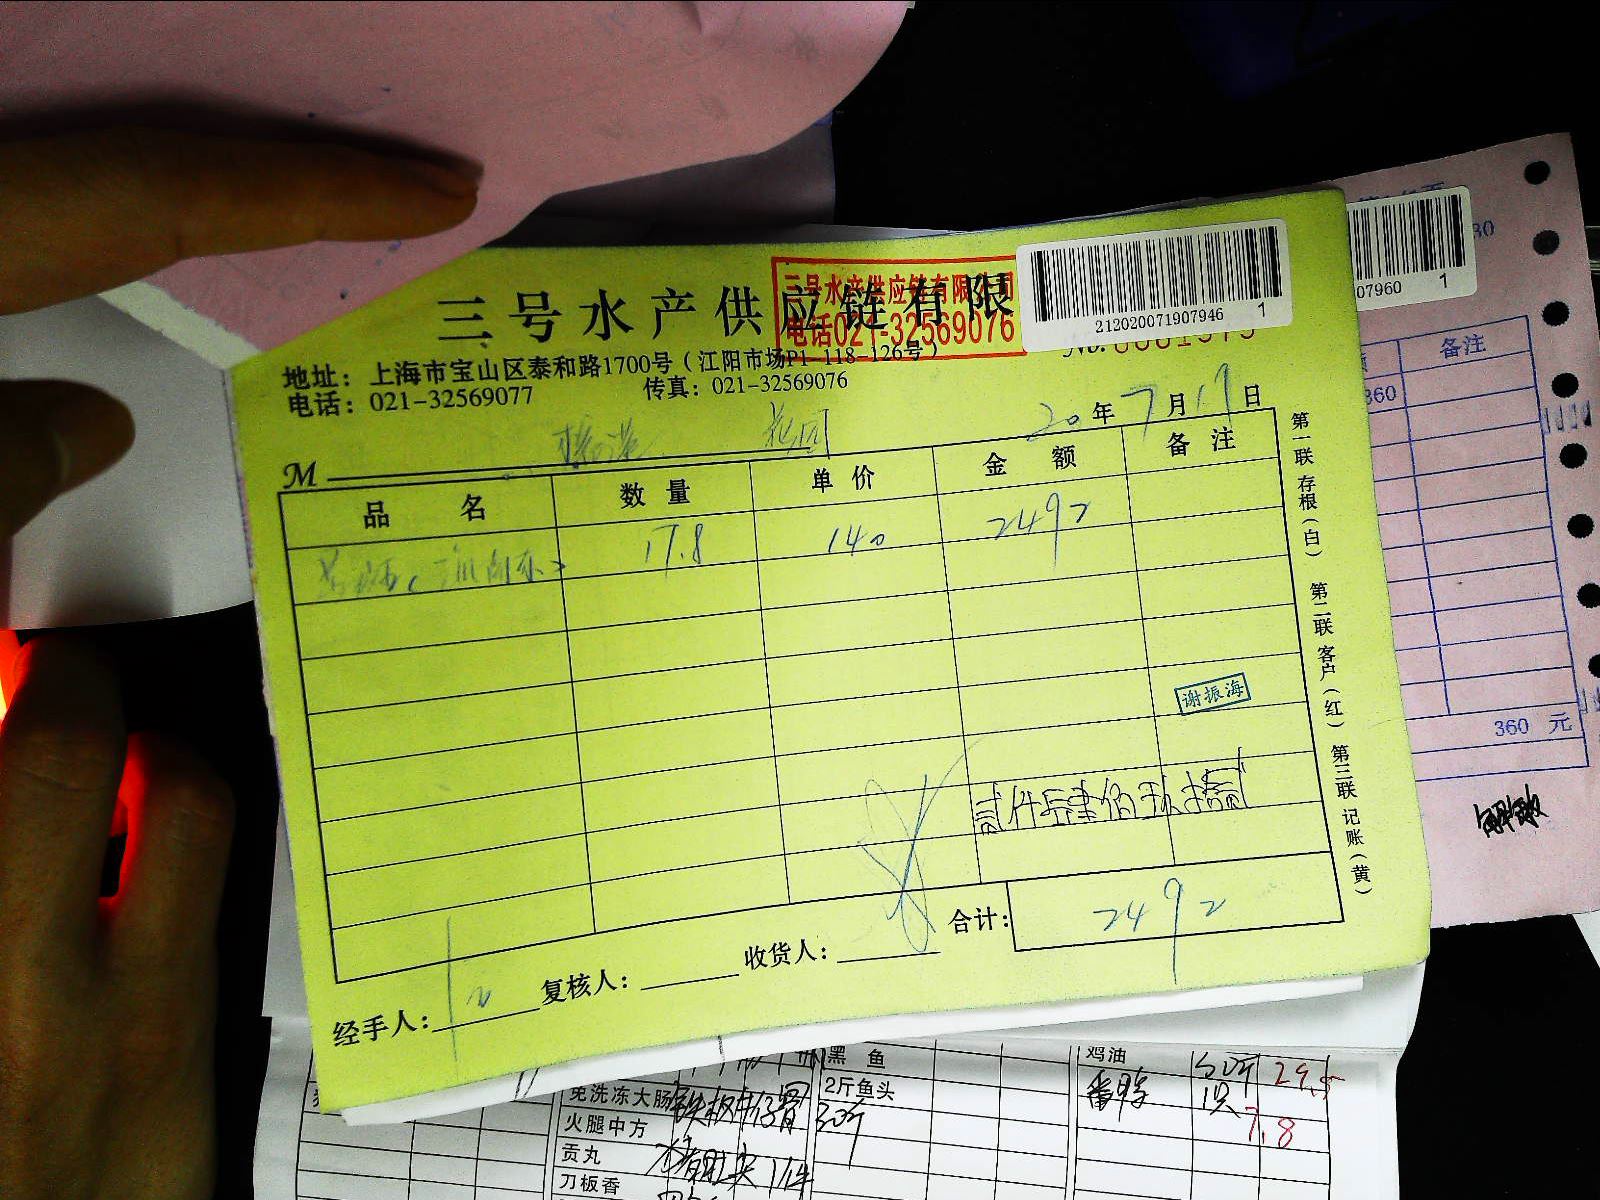 三号水产供应链有限
三号水产供应链有限公司
电话021-32569076
212020071907946 1
07960 1
地址：上海市宝山区泰和路1700号（江阳市场P1-118-126号）
电话：021-32569077 传真：021-32569076
20年7月19日
M
品名 数量 单价 金额 备注
17.8 140 2492
谢振海
贰仟肆佰玖拾贰
合计：2492
经手人： 复核人： 收货人：
第一联 存根（白） 第二联 客户（红） 第三联 记账（黄）
备注
360
360 元
免洗冻大肠
火腿中方
贡丸
刀板香
黑鱼
2斤鱼头
30斤
鸡油 50斤 29.5
番鸭 1只 7.8